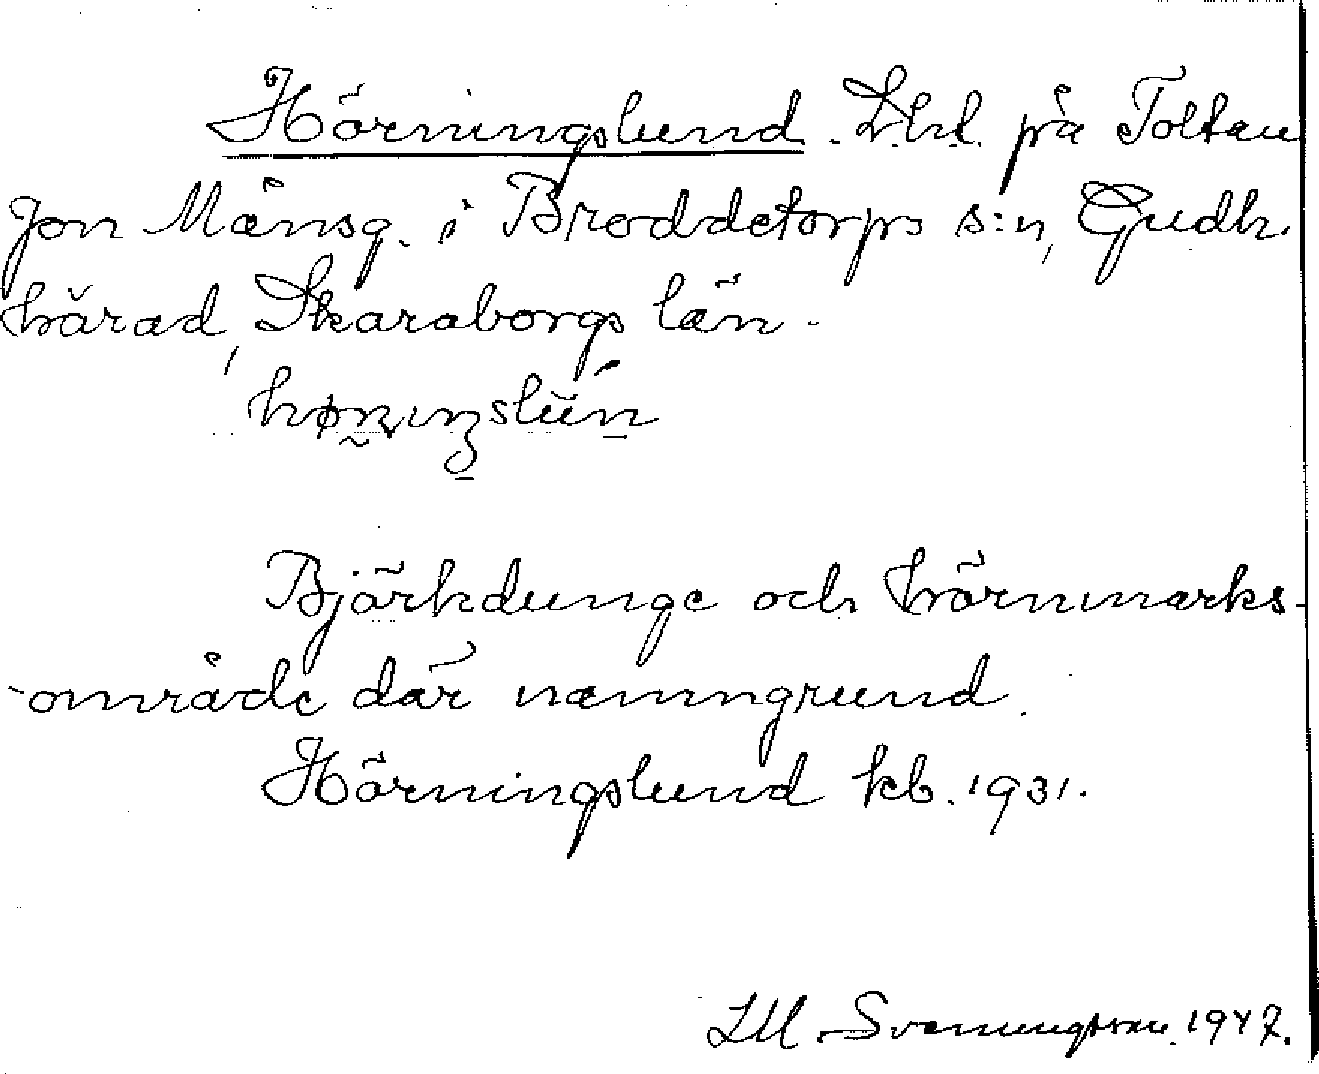 Hörningslund. Lht. på Toltan
Jon Månsg. i Broddetorps s:n, Gudh.
härad, Skaraborgs län.
Björkdunge och hörnmarks-
-område där namngrund.
Hörningslund kb. 1931.
1947.